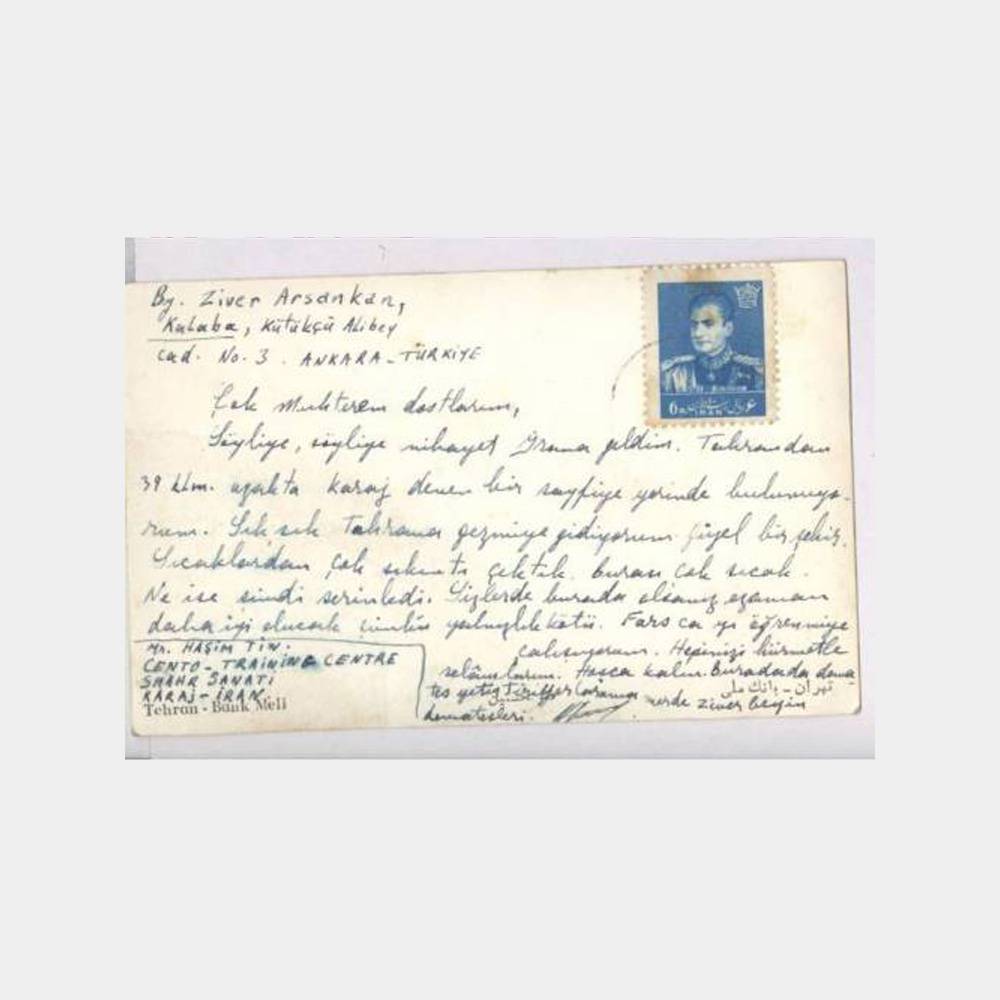 By. Ziver Arsankan,
Kalaba, Kütükçü Alibey
cad. No. 3. ANKARA - TÜRKİYE
Çok Muhterem dostlarım,
Söyliye, söyliye nihayet İrana geldim. Tahrandan
39 klm. uzakta Karaj denen bir sayfiye yerinde bulunuyo-
rum. Sık sık Tahrana gezmiye gidiyorum güzel bir şehir.
Sıcaklardan çok sıkıntı çektik. burası çok sıcak.
Ne ise şimdi serinledi. Sizlerde burada olsanız ozaman
daha iyi olucak çünkü yalnızlık kötü. Fars ca yı öğrenmiye
çalışıyorum. Hepinizi hürmetle
selâmlarım. Hoşca kalın. buradada doma
tes yetiştiriyorlarama nerde ziver beyin
domatesleri.
Mr. HAŞİM TİN.
CENTO - TRAINING CENTRE
SHAHR SANATI
KARAJ - IRAN
Tehran - Bank Meli
تهران - بانک ملی
6 R
IRAN